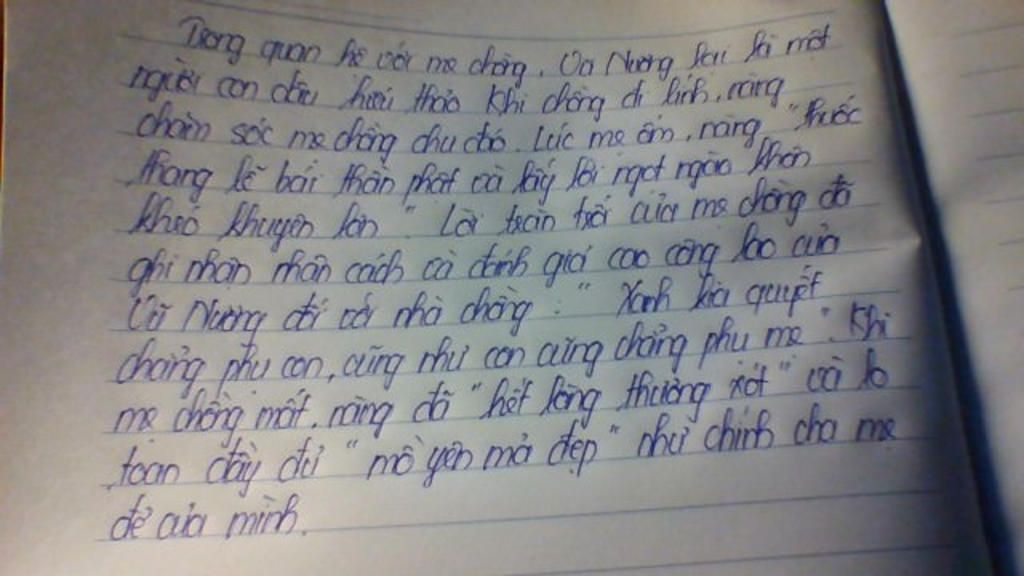 Trong quan hệ với mẹ chồng, Vũ Nương lại là một
người con dâu hiếu thảo khi chồng đi lính, nàng
chăm sóc mẹ chồng chu đáo. Lúc mẹ ốm, nàng "thuốc
thang lễ bái thần phật và lấy lời ngọt ngào khôn
khéo khuyên lơn". Lời trăn trối của mẹ chồng đã
ghi nhận nhân cách và đánh giá cao công lao của
Vũ Nương đối với nhà chồng: "Xanh kia quyết
chẳng phụ con, cũng như con cũng chẳng phụ mẹ". Khi
mẹ chồng mất, nàng đã "hết lòng thương xót" và lo
toan đầy đủ "mồ yên mả đẹp" như chính cha mẹ
đẻ của mình.